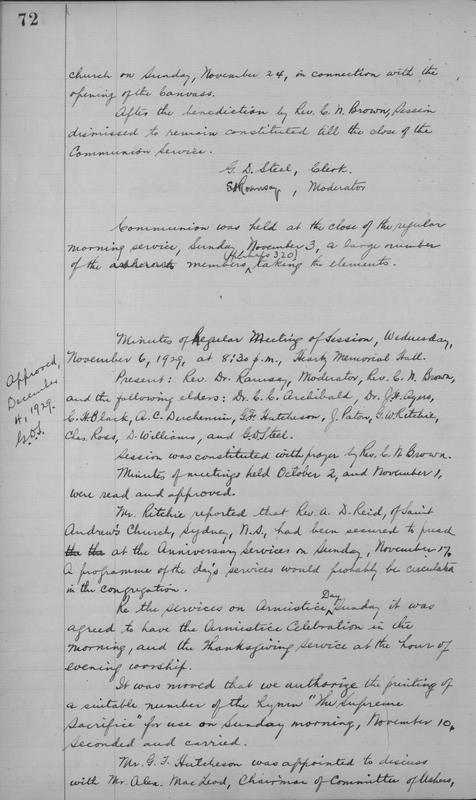 72
church on Sunday, November 24, in connection with the
opening of the Canvass.
After the benediction by Rev. C. N. Brown, Session
dismissed to remain constituted till the close of the
Communion Service.
G. D. Steel, Clerk.
Ramsay, Moderator
Communion was held at the close of the regular
morning service, Sunday, November 3, a large number
(Perhaps 320)
of the members taking the elements.
Minutes of Regular Meeting of Session, Wednesday,
November 6, 1929, at 8:30 p.m., Heartz Memorial Hall.
Approved,
December
4, 1929.
G.D.S.
Present: Rev. Dr. Ramsay, Moderator, Rev. C. N. Brown,
and the following elders: Dr. C. C. Archibald, Dr. J. H. Ayers,
C. H. Black, A. C. Duchemin, G. F. Hutcheson, J. Paton, G. W. Ritchie,
Chas. Ross, D. Williams, and G. D. Steel.
Session was constituted with prayer by Rev. C. N. Brown.
Minutes of meetings held October 2, and November 1,
were read and approved.
Mr. Ritchie reported that Rev. A. D. Reid, of Saint
Andrew's Church, Sydney, N.S., had been secured to preach
at the Anniversary Services on Sunday, November 17.
A programme of the day's services would probably be circulated
in the congregation.
Re the services on Armistice Day Sunday it was
agreed to have the Armistice Celebration in the
morning, and the Thanksgiving service at the hour of
evening worship.
It was moved that we authorize the printing of
a suitable number of the hymn "The Supreme
Sacrifice" for use on Sunday morning, November 10,
seconded and carried.
Mr. G. F. Hutcheson was appointed to discuss
with Mr. Alex. MacLeod, Chairman of Committee of Ushers,